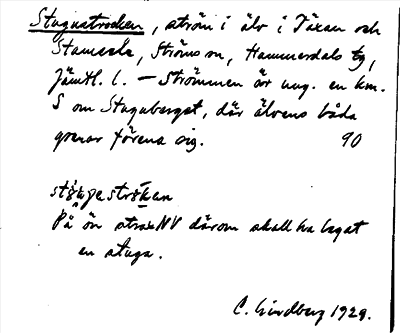 Stugustroken, ström i älv i Täxan och
Stamsele, Ströms sn, Hammerdals tg,
Jämtl. l. – Strömmen är ung. en km.
S om Stuguberget, där älvens båda
grenar förena sig. 90
På ön strax NV därom skall ha legat
en stuga.
C. Lindberg 1929.